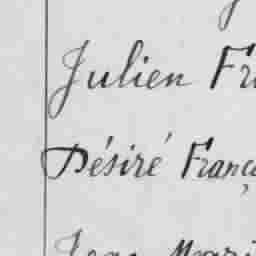 Julien Fr
Désiré Franç
Jean Mari